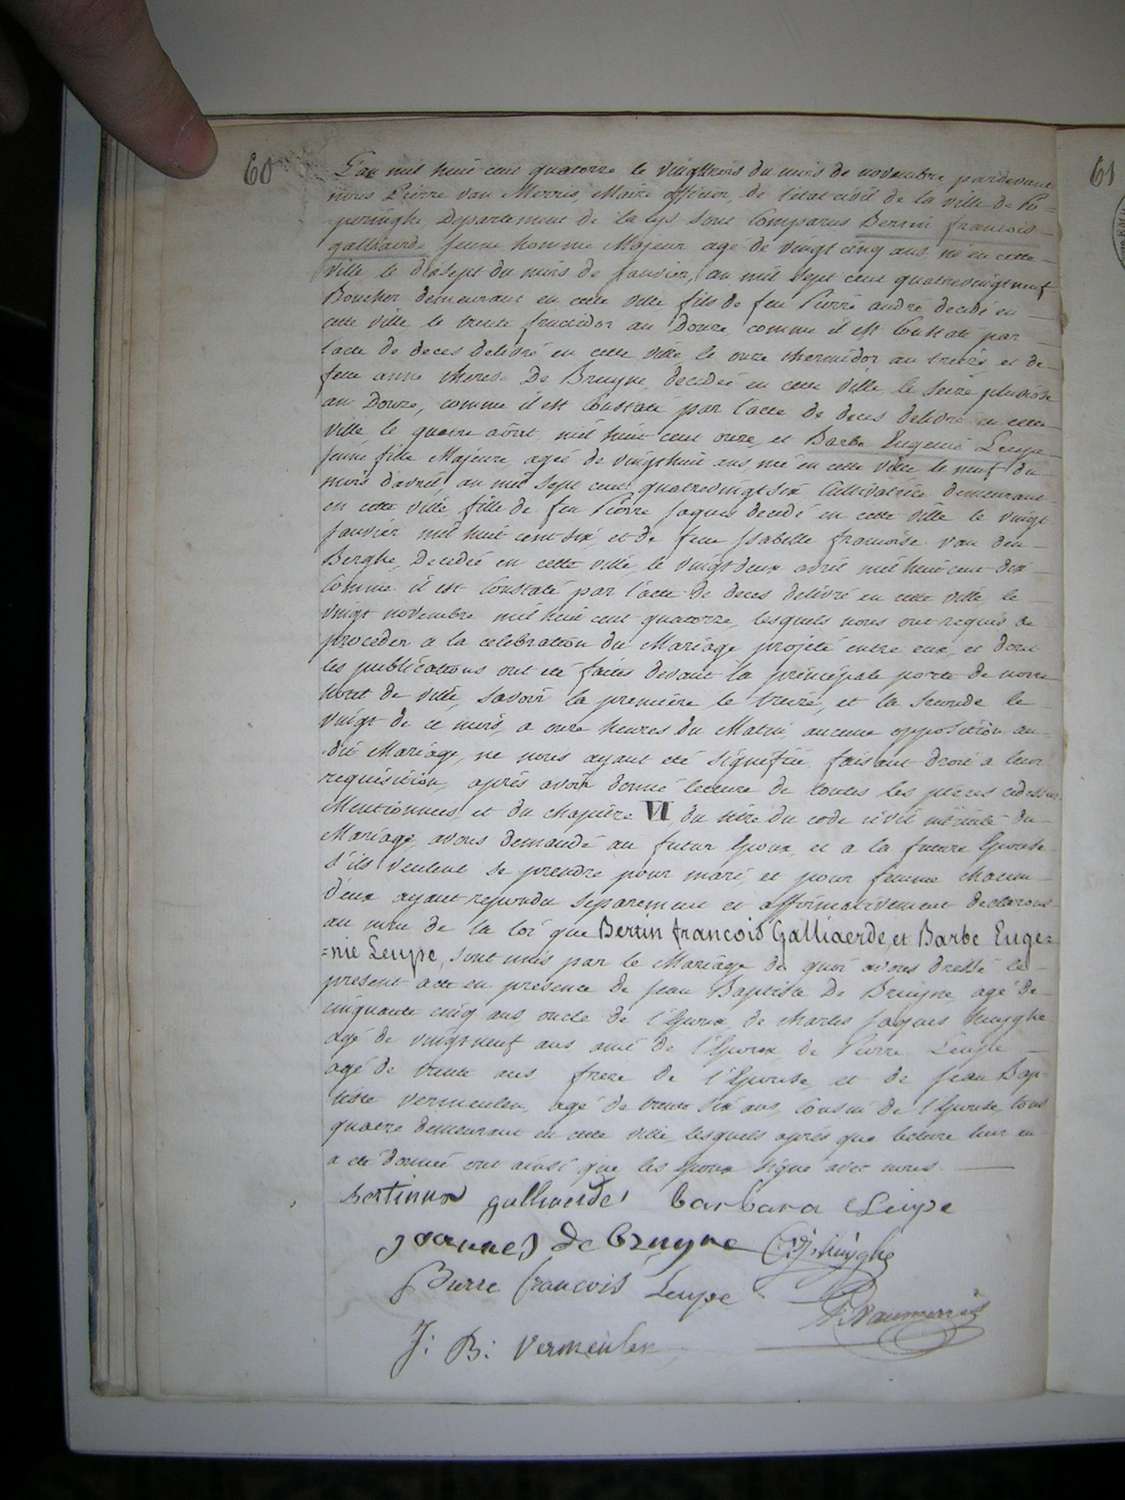 60
L'an mil huit cent quatorze le vingttrois du mois de novembre pardevant
nous Pierre van Merris, Maire officier de l'état civil de la ville de Po=
peringhe, Departement de la Lys sont Comparus Bertin francois
galliaerde jeune homme Majeur agé de vingt cinq ans né en cette
ville le dixsept du mois de janvier, an mil sept cent quatrevingtneuf
Boucher demeurant en cette ville fils de feu Pierre andré decédé en
cette ville le trente fructidor an Douze, comme il est Constaté par
l'acte de deces delivré en cette ville le onze thermidor an treize et de
feue anne therese De Bruyne, decedée en cette ville le seize pluviose
an Douze, comme il est Constaté par l'acte de deces delivré en cette
ville le quatre aôut mil huit cent onze, et Barbe Eugenie Leupe
jeune fille Majeure, ageé de vingthuit ans née en cette ville le neuf du
mois d'avril an mil sept cent quatrevingt six Cultivatrice demeurant
en cette ville fille de feu Pierre Jaques decedé en cette ville le vingt
janvier mil huit cent six, et de feue Isabelle francoise van den
Berghe, Decedée en cette ville, le vingt deux avril mil huit cent dix
Comme il est Constaté par l'acte de deces delivré en cette ville, le
vingt novembre mil huit cent quatorze, lesquels nous ont requis de
proceder a la celebration du Mariage projeté entre eux, et dont
les publications ont eté faites devant la principale porte de notre
hotel de ville, savoir la premiere le treize, et la seconde le
vingt de ce mois, a onze heures du Matin, aucune opposition au
dit Mariage, ne nous ayant eté signifiée, faisant droit a leur
requisition, après avoir donné lecture de toutes les pieces cidessus
Mentionnees et du chapitre VI du titre du code civil intitulé du
Mariage avons demandé au futur Epoux et a la future Epouse
s'ils veulent se prendre pour mari et pour femme chacun
d'eux ayant repondu separement et affirmativement declarons
au nom de la loi que Bertin francois Galliaerde, et Barbe Euge=
=nie Leupe, sont unis par le Mariage de quoi avons dressé le
present acte en presence de jean Baptiste De Bruyne agé de
cinquante cinq ans oncle de l'Epoux, de charles jaques huyghe
agé de vingtneuf ans ami de l'Epoux, de Pierre Leupe
agé de trente ans frere de l'Epouse, et de jean Bap-
tiste vermeulen, agé de trente six ans, Cousin de l'Epouse, tous
quatre demeurant en cette ville lesquels après que lecture leur en
a eté donnée ont ainsi que les Epoux signe avec nous.
Bertinus galliaerde barbara Leupe
joannes de bruyne C: J: huyghe
Pierre francois Leupe P. vanmerris
J: B: vermeulen
61